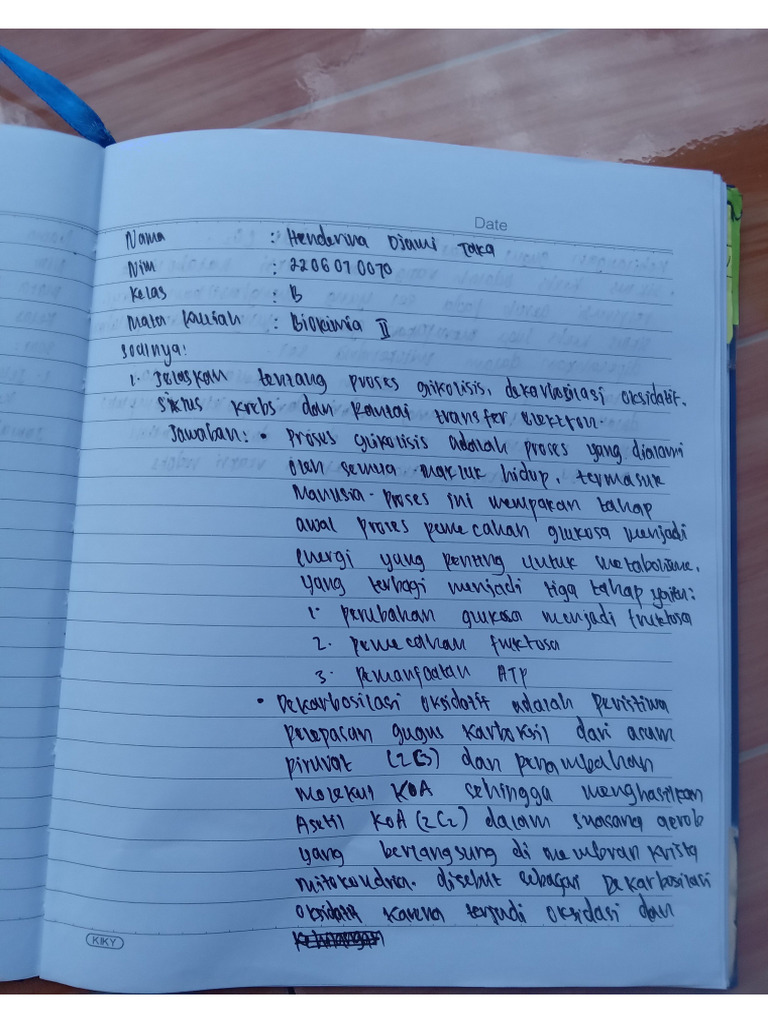 Date
Nama : Henderina Diami Taka
Nim : 2206070070
Kelas : B
Mata Kuliah : Biokimia II
Soalnya:
1. Jelaskan tentang proses glikolisis, dekarboksilasi oksidatif,
siklus krebs dan Rantai transfer elektron.
Jawaban: • Proses glikolisis adalah proses yang dialami
oleh semua makluk hidup, termasuk
Manusia. Proses ini merupakan tahap
awal proses pemecahan glukosa menjadi
energi yang penting untuk metabolisme,
yang terbagi menjadi tiga tahap yaitu:
1. perubahan glukosa menjadi fruktosa
2. pemecahan fruktosa
3. pemanfaatan ATP
• Dekarbosilasi oksidatif adalah peristiwa
pelepasan gugus karboksil dari asam
piruvat (2C3) dan penambahan
molekul KOA sehingga menghasilkan
Asetil KOA (2C2) dalam suasana aerob
yang berlangsung di membran krista
mitokondria. disebut sebagai Dekarbosilasi
oksidatif karena terjadi oksidasi dan
KIKY